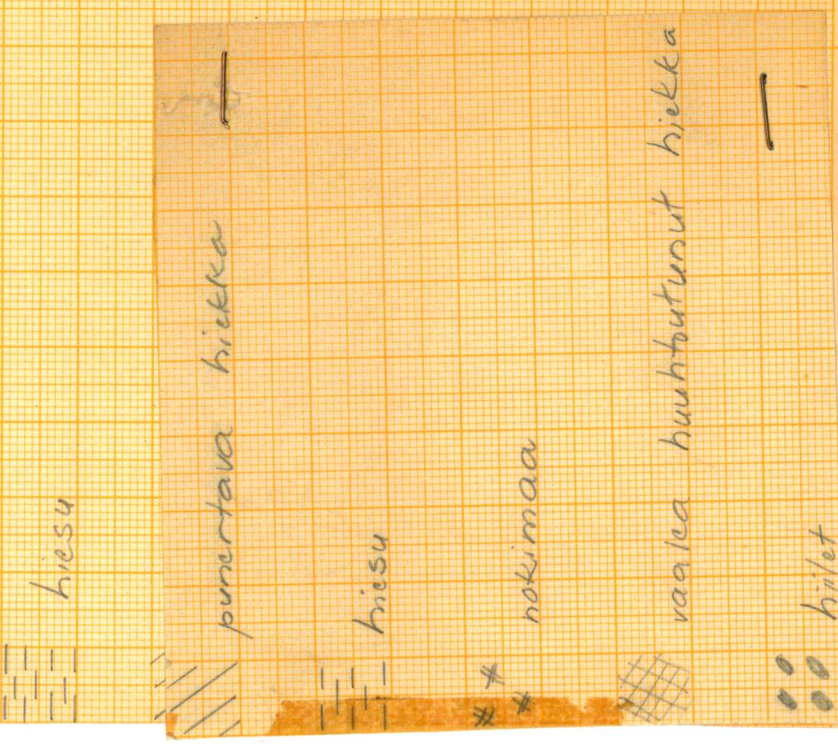 hiesu
punertava hiekka
hiesu
nokimaa
vaalea huuhtoutunut hiekka
hiilet